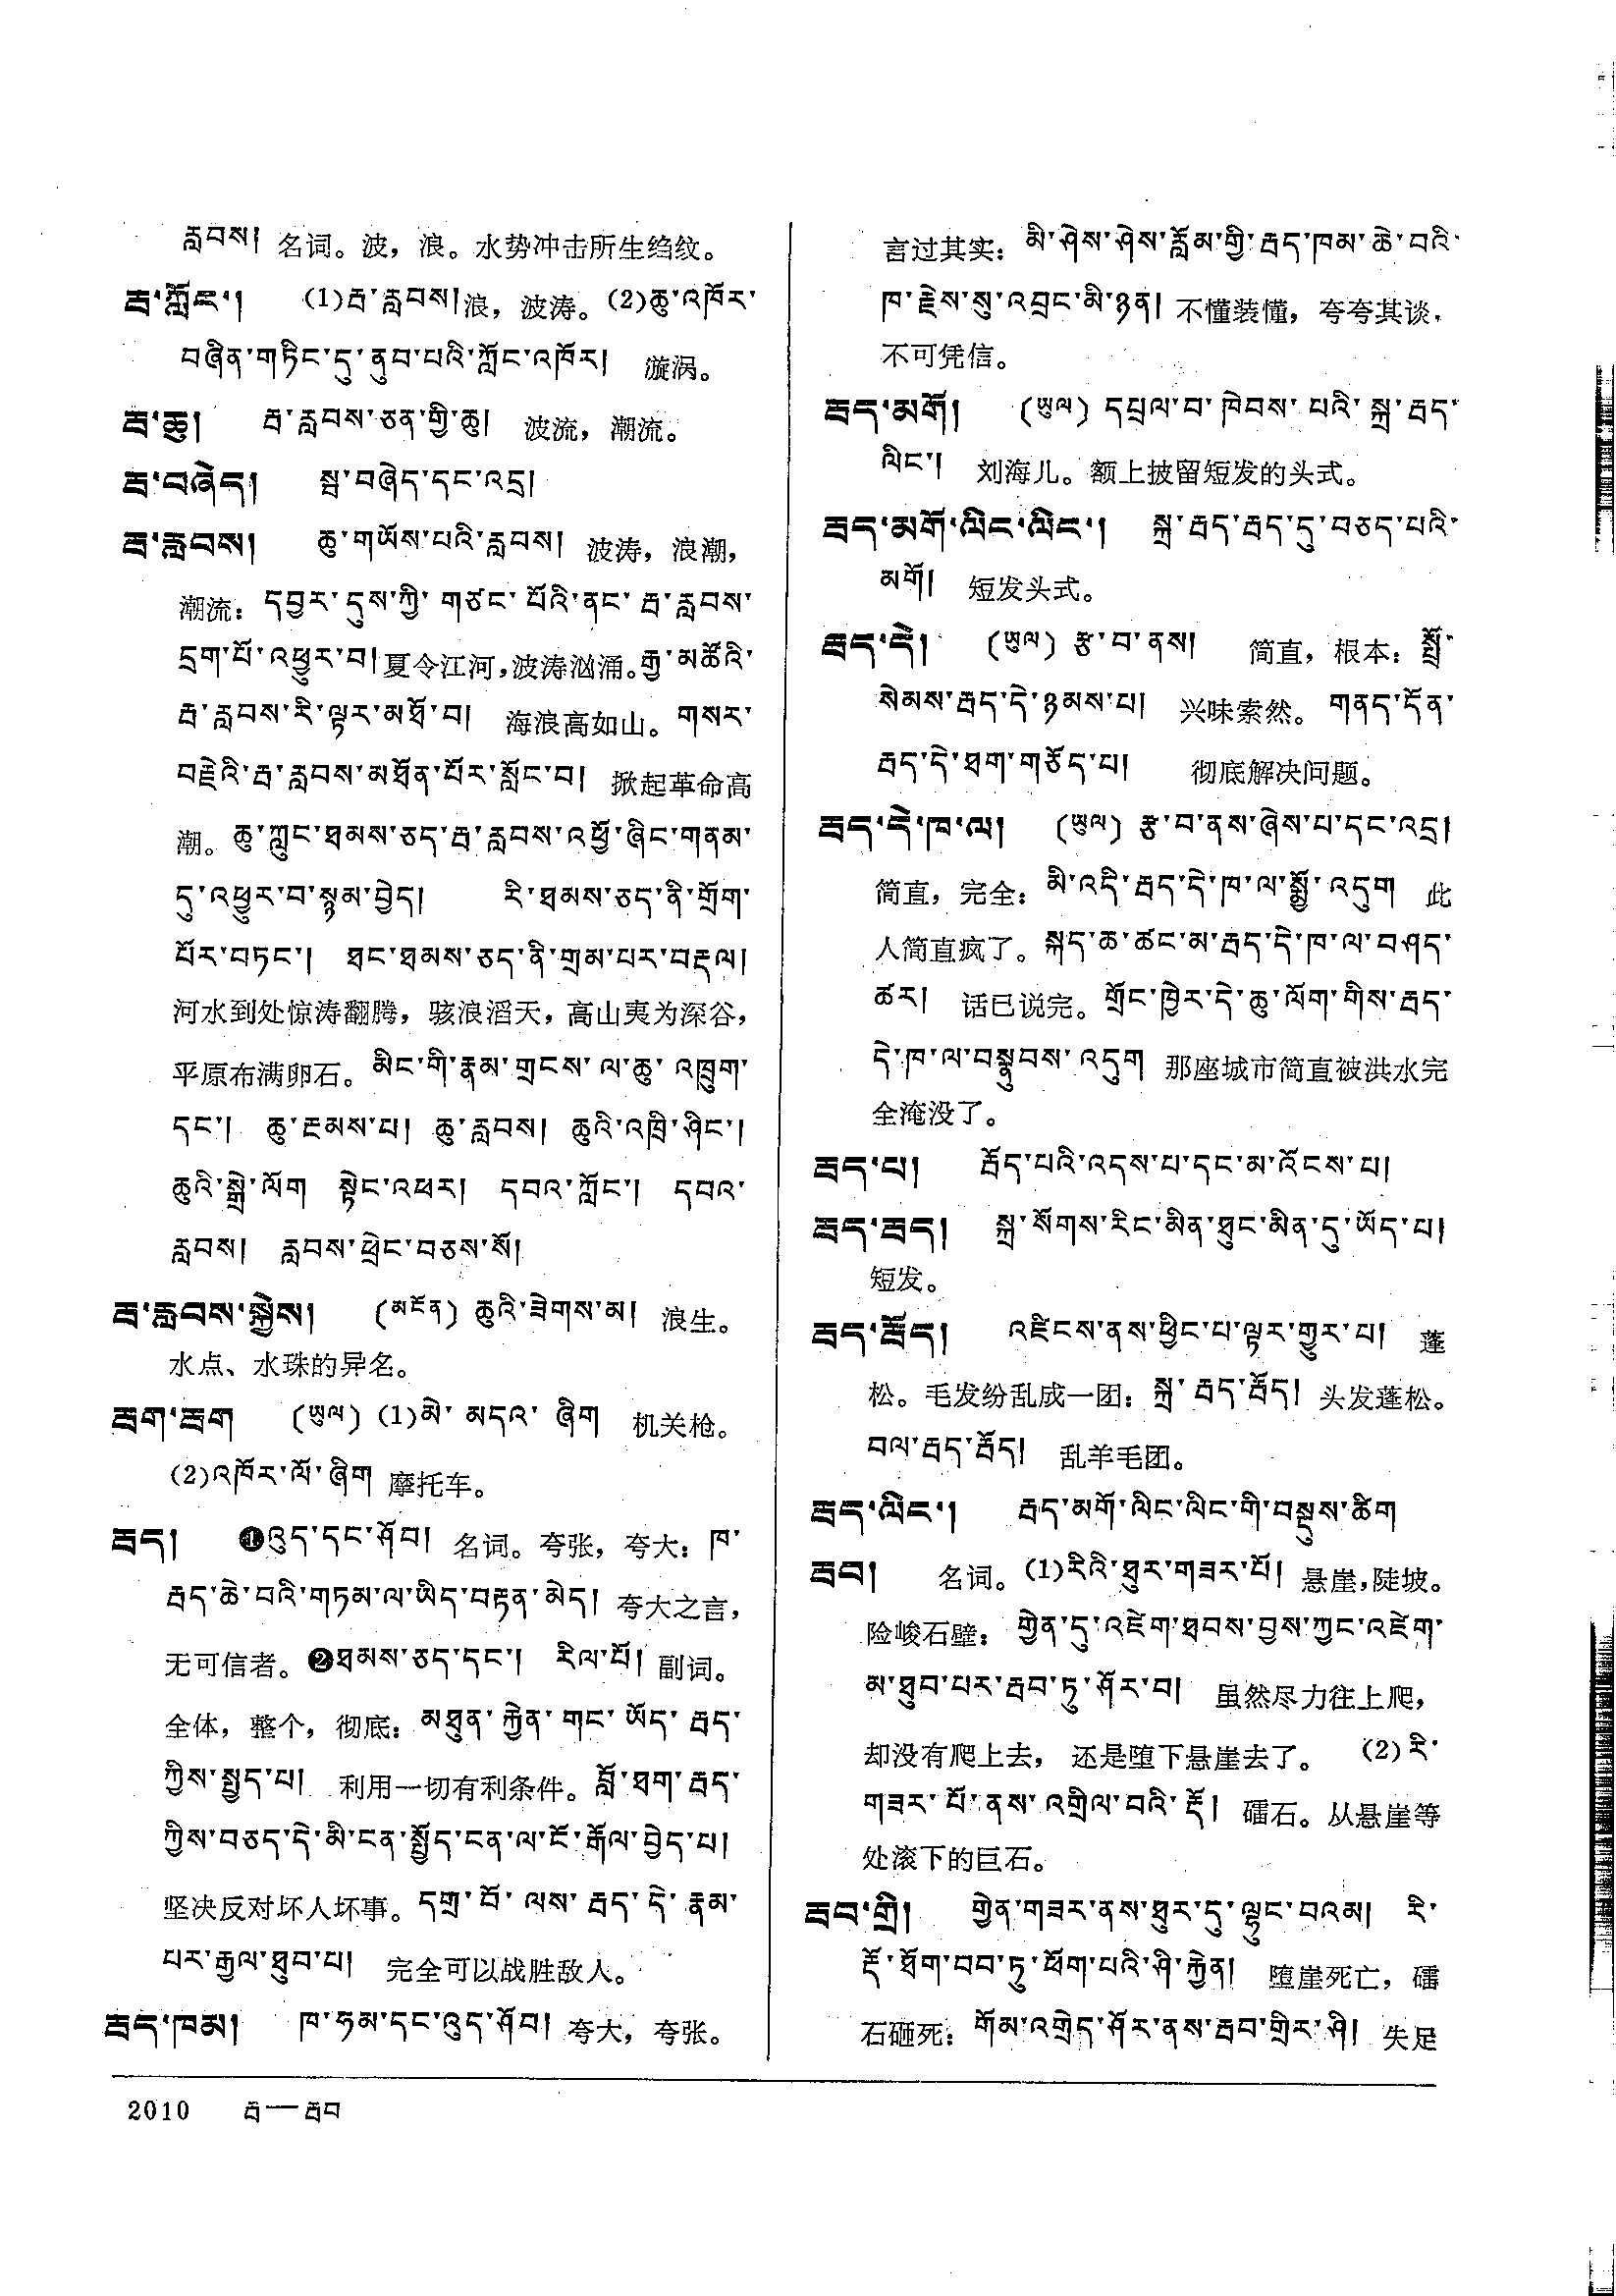 རླབས། 名词。波，浪。水势冲击所生绉纹。
རྦ་ཀློང་། (1)རྦ་རླབས།浪，波涛。(2)ཆུ་འཁོར་
བཞིན་གཏིང་དུ་ནུབ་པའི་ཀློང་འཁོར། 漩涡。
རྦ་ཆུ། རྦ་རླབས་ཅན་གྱི་ཆུ། 波流，潮流。
རྦ་བཞེད། སྦ་བཞེད་དང་འདྲ།
རྦ་རླབས། ཆུ་གཡོས་པའི་རླབས། 波涛，浪潮，
潮流：དབྱར་དུས་ཀྱི་གཙང་པོའི་ནང་རྦ་རླབས་
དྲག་པོ་འཕྱུར་བ།夏令江河，波涛汹涌。རྒྱ་མཚོའི་
རྦ་རླབས་རི་ལྟར་མཐོ་བ། 海浪高如山。གསར་
བརྗེའི་རྦ་རླབས་མཐོན་པོར་སློང་བ། 掀起革命高
潮。ཆུ་ཀླུང་ཐམས་ཅད་རྦ་རླབས་འཕྱོ་ཞིང་གནམ་
དུ་འཕྱུར་བ་སྙམ་བྱེད། རི་ཐམས་ཅད་ནི་གྲོག་
པོར་བཏང་། ཐང་ཐམས་ཅད་ནི་གྲམ་པར་བརྡལ།
河水到处惊涛翻腾，骇浪滔天，高山夷为深谷，
平原布满卵石。མིང་གི་རྣམ་གྲངས་ལ་ཆུ་འཁྲུག་
དང་། ཆུ་རྔམས་པ། ཆུ་རླབས། ཆུའི་འཁྲི་ཤིང་།
ཆུའི་སྒྲེ་ལོག སྟེང་འཕར། དབའ་ཀློང་། དབའ་
རླབས། རླབས་ཕྲེང་བཅས་སོ།
རྦ་རླབས་སྐྱེས། (མངོན) ཆུའི་ཟེགས་མ། 浪生。
水点、水珠的异名。
རྦག་རྦག (ཡུལ) (1)མེ་མདའ་ཞིག 机关枪。
(2)འཁོར་ལོ་ཞིག 摩托车。
རྦད། ❶འུད་དང་ཤོབ། 名词。夸张，夸大：ཁ་
རྦད་ཆེ་བའི་གཏམ་ལ་ཡིད་བརྟན་མེད། 夸大之言，
无可信者。❷ཐམས་ཅད་དང་། རིལ་པོ། 副词。
全体，整个，彻底：མཐུན་རྐྱེན་གང་ཡོད་རྦད་
ཀྱིས་སྤྱད་པ། 利用一切有利条件。བློ་ཐག་རྦད་
ཀྱིས་བཅད་དེ་མི་ངན་སྤྱོད་ངན་ལ་ངོ་རྒོལ་བྱེད་པ།
坚决反对坏人坏事。དགྲ་བོ་ལས་རྦད་དེ་རྣམ་
པར་རྒྱལ་ཐུབ་པ། 完全可以战胜敌人。
རྦད་ཁམ། ཁ་ཧམ་དང་འུད་ཤོབ། 夸大，夸张。
言过其实：མི་ཤེས་ཤེས་རློམ་གྱི་རྦད་ཁམ་ཆེ་བའི་
ཁ་རྗེས་སུ་འབྲང་མི་ཉན། 不懂装懂，夸夸其谈，
不可凭信。
རྦད་མགོ། (ཡུལ) དཔྲལ་བ་ཁེབས་པའི་སྐྲ་རྦད་
ལིང་། 刘海儿。额上披留短发的头式。
རྦད་མགོ་ལིང་ལིང་། སྐྲ་རྦད་རྦད་དུ་བཅད་པའི་
མགོ། 短发头式。
རྦད་དེ། (ཡུལ) རྩ་བ་ནས། 简直，根本：སྤྲོ་
སེམས་རྦད་དེ་ཉམས་པ། 兴味索然。གནད་དོན་
རྦད་དེ་ཐག་གཅོད་པ། 彻底解决问题。
རྦད་དེ་ཁ་ལ། (ཡུལ) རྩ་བ་ནས་ཞེས་པ་དང་འདྲ།
简直，完全：མི་འདི་རྦད་དེ་ཁ་ལ་སྨྱོ་འདུག 此
人简直疯了。སྐད་ཆ་ཚང་མ་རྦད་དེ་ཁ་ལ་བཤད་
ཚར། 话已说完。གྲོང་ཁྱེར་དེ་ཆུ་ལོག་གིས་རྦད་
དེ་ཁ་ལ་བསྣུབས་འདུག 那座城市简直被洪水完
全淹没了。
རྦད་པ། རྦོད་པའི་འདས་པ་དང་མ་འོངས་པ།
རྦད་རྦད། སྐྲ་སོགས་རིང་མིན་ཐུང་མིན་དུ་ཡོད་པ།
短发。
རྦད་རྦོད། འཛིངས་ནས་ཕྱིང་པ་ལྟར་གྱུར་པ། 蓬
松。毛发纷乱成一团：སྐྲ་རྦད་རྦོད། 头发蓬松。
བལ་རྦད་རྦོད། 乱羊毛团。
རྦད་ལིང་། རྦད་མགོ་ལིང་ལིང་གི་བསྡུས་ཚིག
རྦབ། 名词。(1)རིའི་ཐུར་གཟར་པོ། 悬崖，陡坡。
险峻石壁：གྱེན་དུ་འཛེག་ཐབས་བྱས་ཀྱང་འཛེག་
མ་ཐུབ་པར་རྦབ་ཏུ་ཤོར་བ། 虽然尽力往上爬，
却没有爬上去，还是堕下悬崖去了。 (2)རི་
གཟར་པོ་ནས་འགྲིལ་བའི་རྡོ། 礌石。从悬崖等
处滚下的巨石。
རྦབ་གྲི། གྱེན་གཟར་ནས་ཐུར་དུ་ལྷུང་བའམ། རི་
རྡོ་ཐོག་བབ་ཏུ་ཕོག་པའི་ཤི་རྐྱེན། 堕崖死亡，礌
石砸死：གོམ་འགྲེད་ཤོར་ནས་རྦབ་གྲིར་ཤི། 失足
2010 རྦ—རྦབ